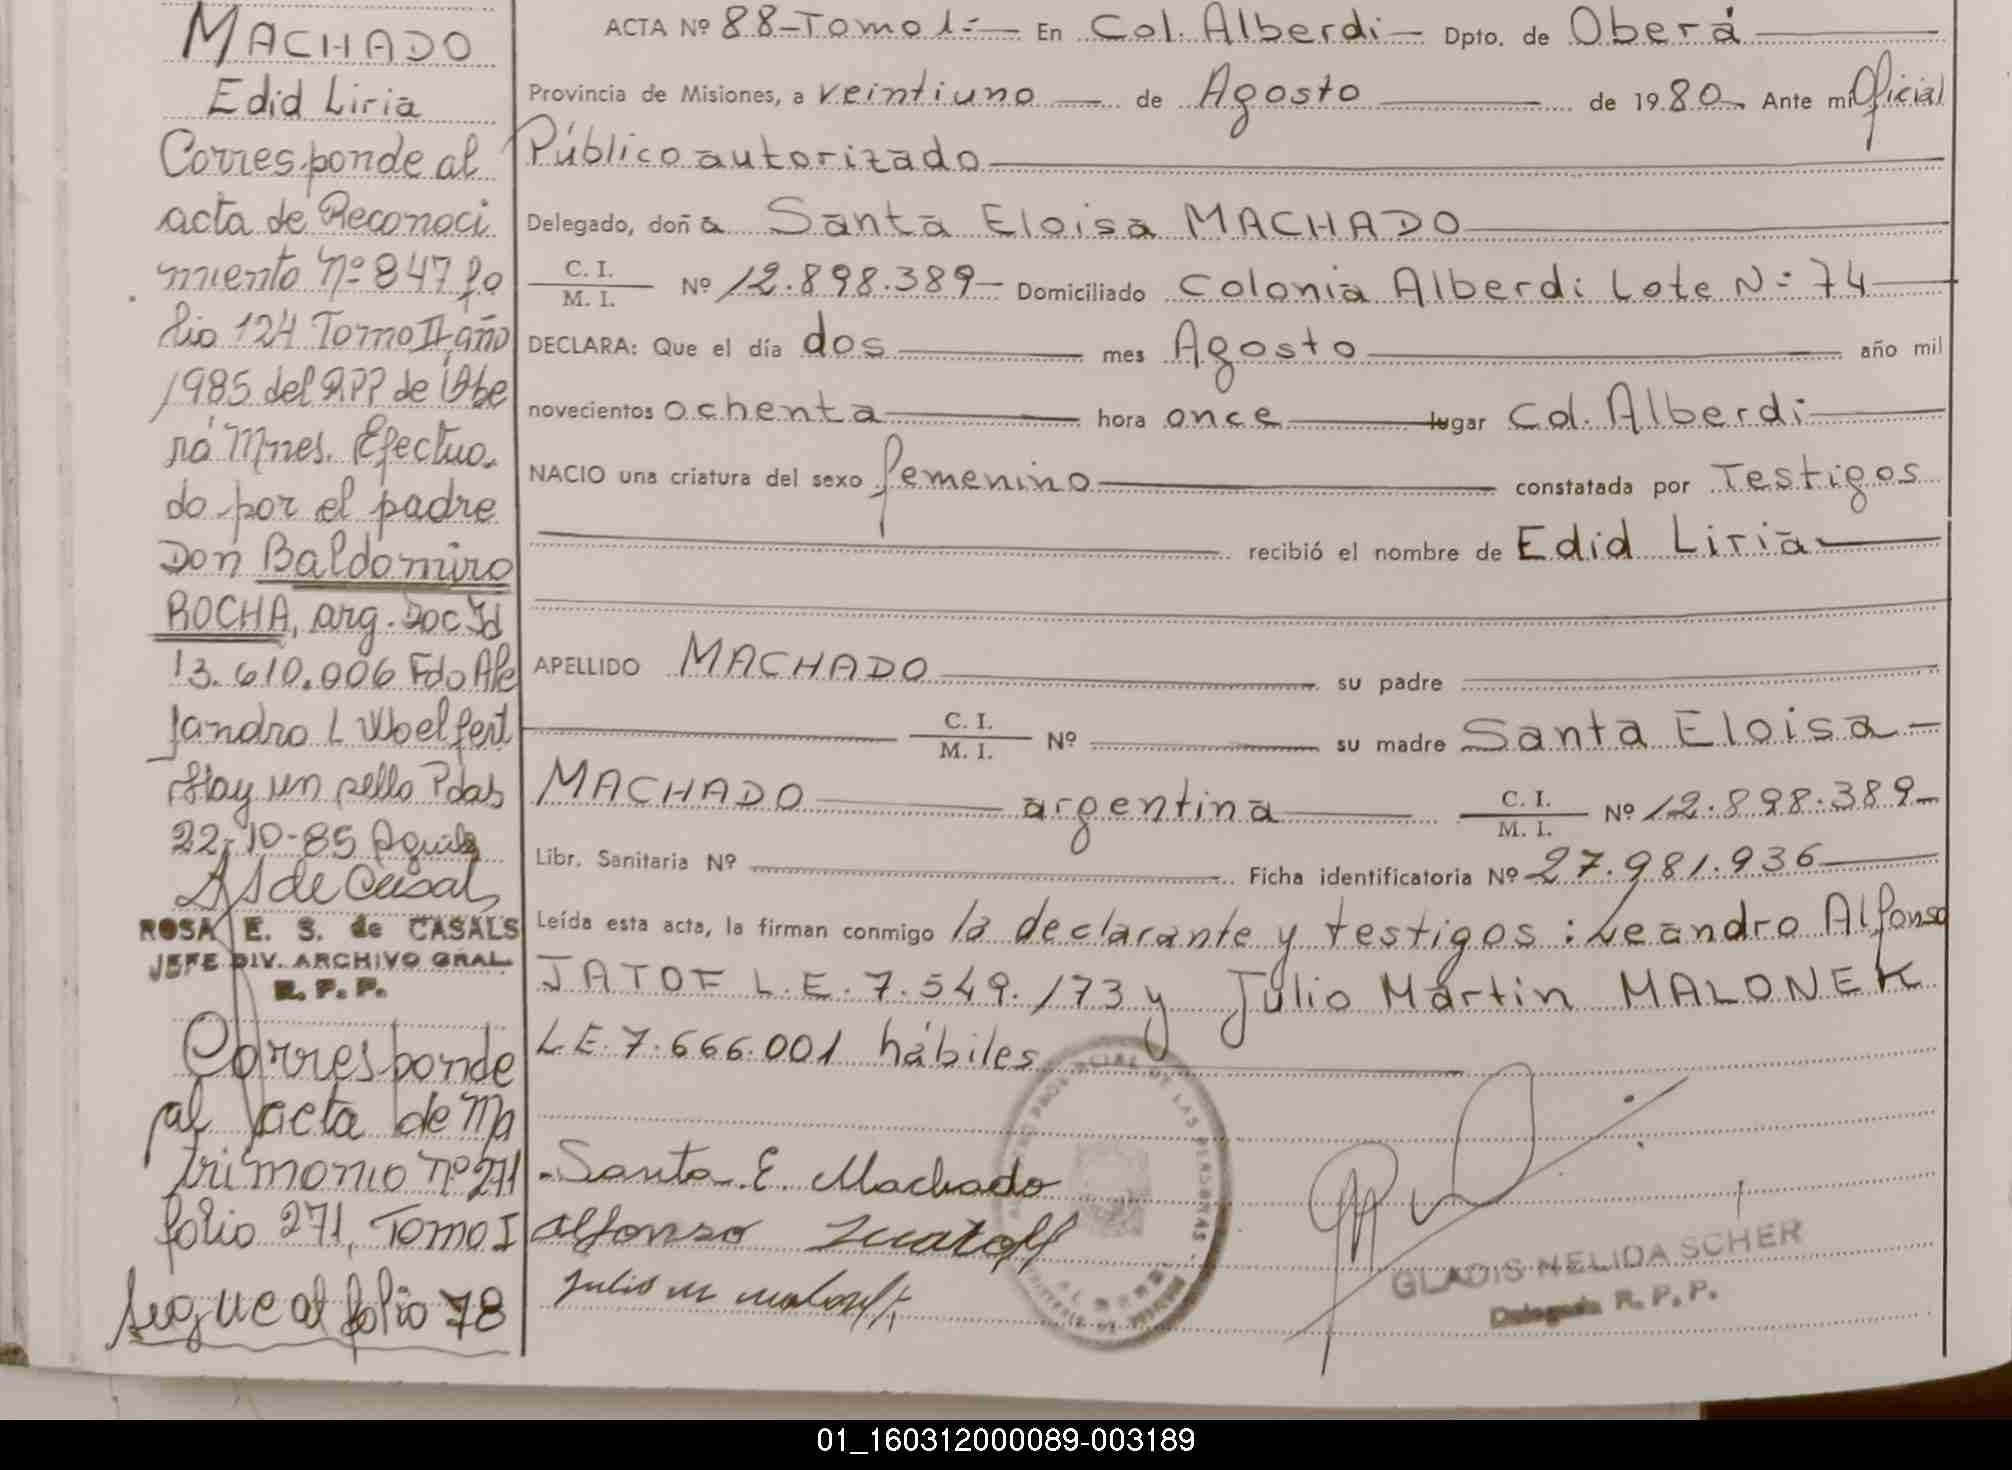 MACHADO
Edid Liria
Corresponde al
acta de Reconoci
miento Nº 847 fo
lio 124 Tomo II año
1985 del RPP de Obe
rá Mnes. Efectua-
do por el padre
Don Baldomiro
ROCHA, arg. Doc Id
13.610.006 Fdo Ale
jandro L Woelfert
Hay un sello Pdas
22-10-85
ROSA E. S. de CASALS
JEFE DIV. ARCHIVO GRAL.
R. P. P.
Corresponde
al acta de Ma
trimonio Nº 271
folio 271, Tomo I
Segue al folio 78
ACTA Nº 88-Tomo 1:- En Col. Alberdi- Dpto. de Oberá
Provincia de Misiones, a veintiuno de Agosto de 1980. Ante mi Oficial
Público autorizado
Delegado, doña Santa Eloisa MACHADO
C. I.
M. I. Nº 12.898.389- Domiciliado Colonia Alberdi Lote N= 74
DECLARA: Que el día dos mes Agosto año mil
novecientos ochenta hora once lugar Col. Alberdi
NACIO una criatura del sexo femenino constatada por Testigos
recibió el nombre de Edid Liria
APELLIDO MACHADO su padre
C. I.
M. I. Nº su madre Santa Eloisa-
MACHADO argentina C. I.
M. I. Nº 12.898.389-
Libr. Sanitaria Nº Ficha identificatoria Nº 27.981.936
Leída esta acta, la firman conmigo la declarante y testigos: Leandro Alfonso
JATOF L.E.7.549.173 y Julio Martin MALONEK
L.E.7.666.001 hábiles
Santa E. Machado
Alfonso
Julio M
GLADIS NELIDA SCHER
Delegada R. P. P.
01_160312000089-003189